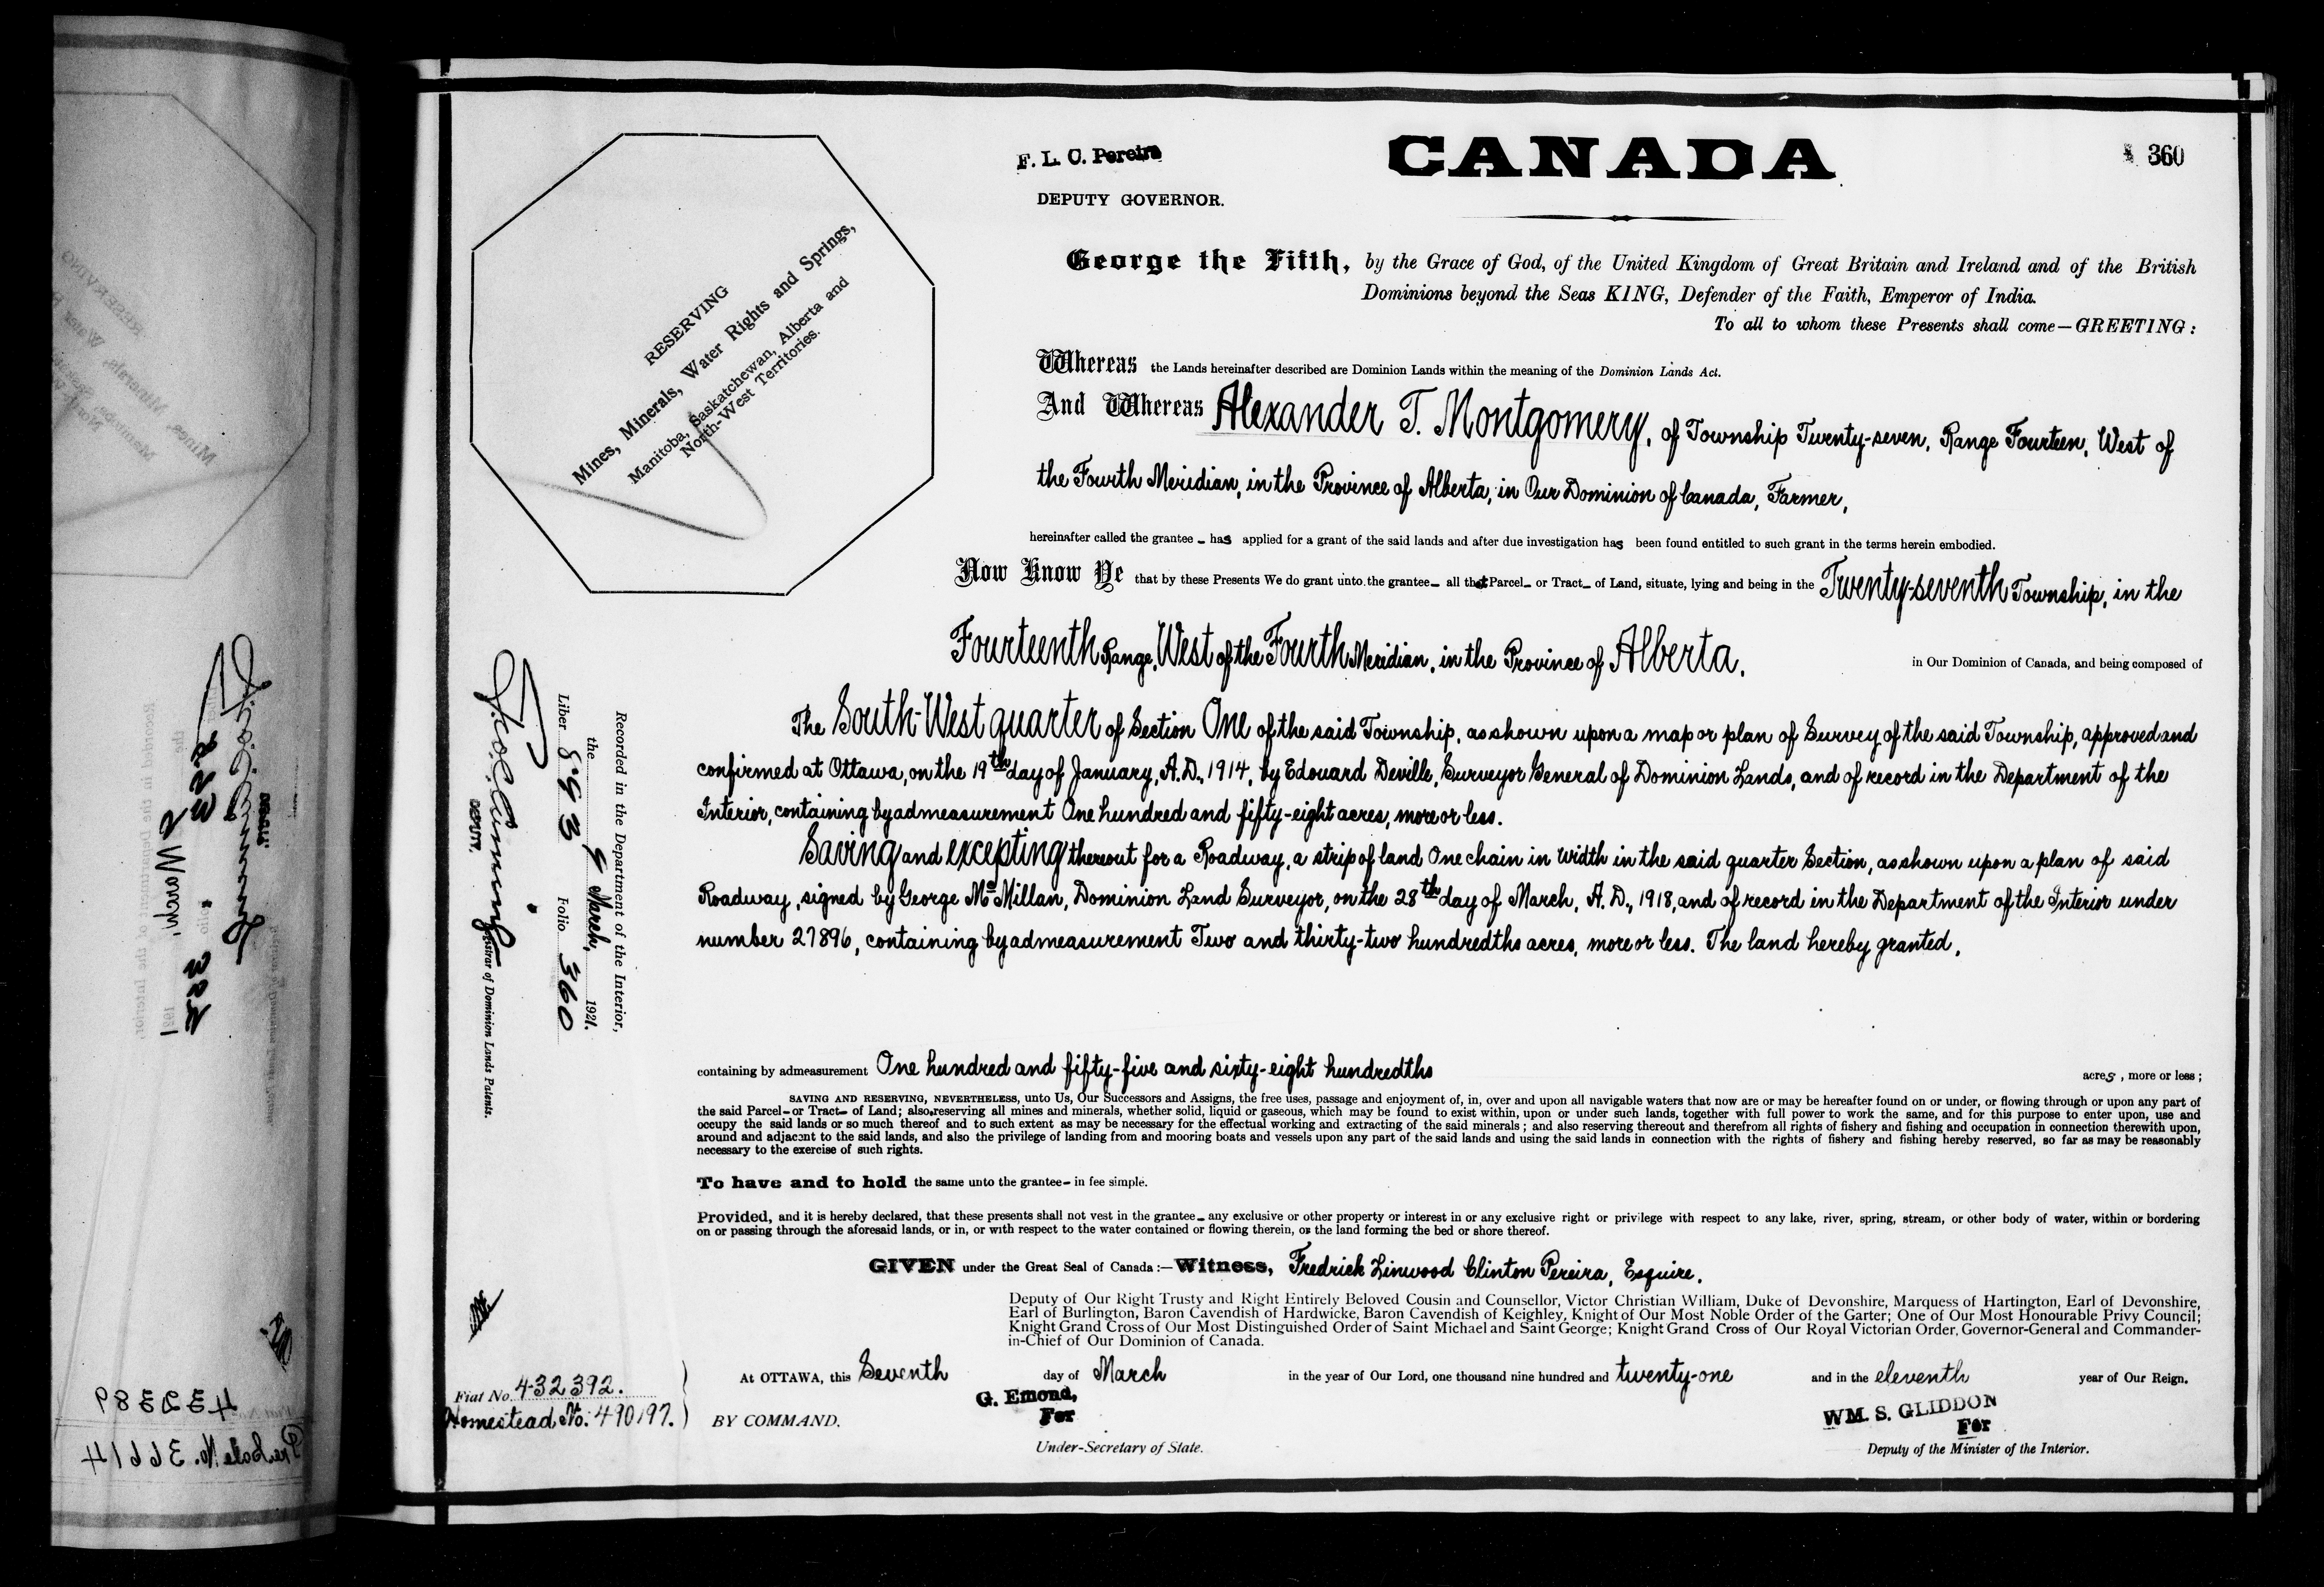 F. L. C. Pereira
CANADA
360
DEPUTY GOVERNOR.
George the Fifth, by the Grace of God, of the United Kingdom of Great Britain and Ireland and of the British
Dominions beyond the Seas KING, Defender of the Faith, Emperor of India.
To all to whom these Presents shall come—GREETING:
RESERVING
Mines, Minerals, Water Rights and Springs,
Manitoba, Saskatchewan, Alberta and
North-West Territories.
Whereas the Lands hereinafter described are Dominion Lands within the meaning of the Dominion Lands Act.
And Whereas Alexander T. Montgomery, of Township Twenty-seven, Range Fourteen, West of
the Fourth Meridian, in the Province of Alberta, in Our Dominion of Canada, Farmer,
hereinafter called the grantee - has applied for a grant of the said lands and after due investigation has been found entitled to such grant in the terms herein embodied.
Now Know Ye that by these Presents We do grant unto the grantee- all that Parcel- or Tract- of Land, situate, lying and being in the Twenty-seventh Township, in the
Fourteenth Range, West of the Fourth Meridian, in the Province of Alberta, in Our Dominion of Canada, and being composed of
The South-West quarter of Section One of the said Township, as shown upon a map or plan of Survey of the said Township, approved and
confirmed at Ottawa, on the 19th day of January, A.D., 1914, by Edouard Deville, Surveyor General of Dominion Lands, and of record in the Department of the
Interior, containing by admeasurement One hundred and fifty-eight acres, more or less.
Saving and excepting thereout for a Roadway, a strip of land One chain in width in the said quarter Section, as shown upon a plan of said
Roadway, signed by George McMillan, Dominion Land Surveyor, on the 28th day of March, A.D., 1918, and of record in the Department of the Interior under
number 27896, containing by admeasurement Two and thirty-two hundredths acres, more or less. The land hereby granted,
containing by admeasurement One hundred and fifty-five and sixty-eight hundredths acres, more or less;
SAVING AND RESERVING, NEVERTHELESS, unto Us, Our Successors and Assigns, the free uses, passage and enjoyment of, in, over and upon all navigable waters that now are or may be hereafter found on or under, or flowing through or upon any part of
the said Parcel- or Tract- of Land; also reserving all mines and minerals, whether solid, liquid or gaseous, which may be found to exist within, upon or under such lands, together with full power to work the same, and for this purpose to enter upon, use and
occupy the said lands or so much thereof and to such extent as may be necessary for the effectual working and extracting of the said minerals; and also reserving thereout and therefrom all rights of fishery and fishing and occupation in connection therewith upon,
around and adjacent to the said lands, and also the privilege of landing from and mooring boats and vessels upon any part of the said lands and using the said lands in connection with the rights of fishery and fishing hereby reserved, so far as may be reasonably
necessary to the exercise of such rights.
To have and to hold the same unto the grantee- in fee simple.
Provided, and it is hereby declared, that these presents shall not vest in the grantee- any exclusive or other property or interest in or any exclusive right or privilege with respect to any lake, river, spring, stream, or other body of water, within or bordering
on or passing through the aforesaid lands, or in, or with respect to the water contained or flowing therein, or the land forming the bed or shore thereof.
GIVEN under the Great Seal of Canada:—Witness, Fredrick Linwood Clinton Pereira, Esquire,
Deputy of Our Right Trusty and Right Entirely Beloved Cousin and Counsellor, Victor Christian William, Duke of Devonshire, Marquess of Hartington, Earl of Devonshire,
Earl of Burlington, Baron Cavendish of Hardwicke, Baron Cavendish of Keighley, Knight of Our Most Noble Order of the Garter; One of Our Most Honourable Privy Council;
Knight Grand Cross of Our Most Distinguished Order of Saint Michael and Saint George; Knight Grand Cross of Our Royal Victorian Order, Governor-General and Commander-
in-Chief of Our Dominion of Canada.
At OTTAWA, this Seventh day of March in the year of Our Lord, one thousand nine hundred and twenty-one and in the eleventh year of Our Reign.
BY COMMAND.
G. Emond,
For
Under-Secretary of State.
WM. S. GLIDDON
For
Deputy of the Minister of the Interior.
Recorded in the Department of the Interior,
the 9 March, 1921.
Liber 893 Folio 360
DEPUTY.
Registrar of Dominion Lands Patents.
Fiat No. 432392.
Homestead No. 490197.